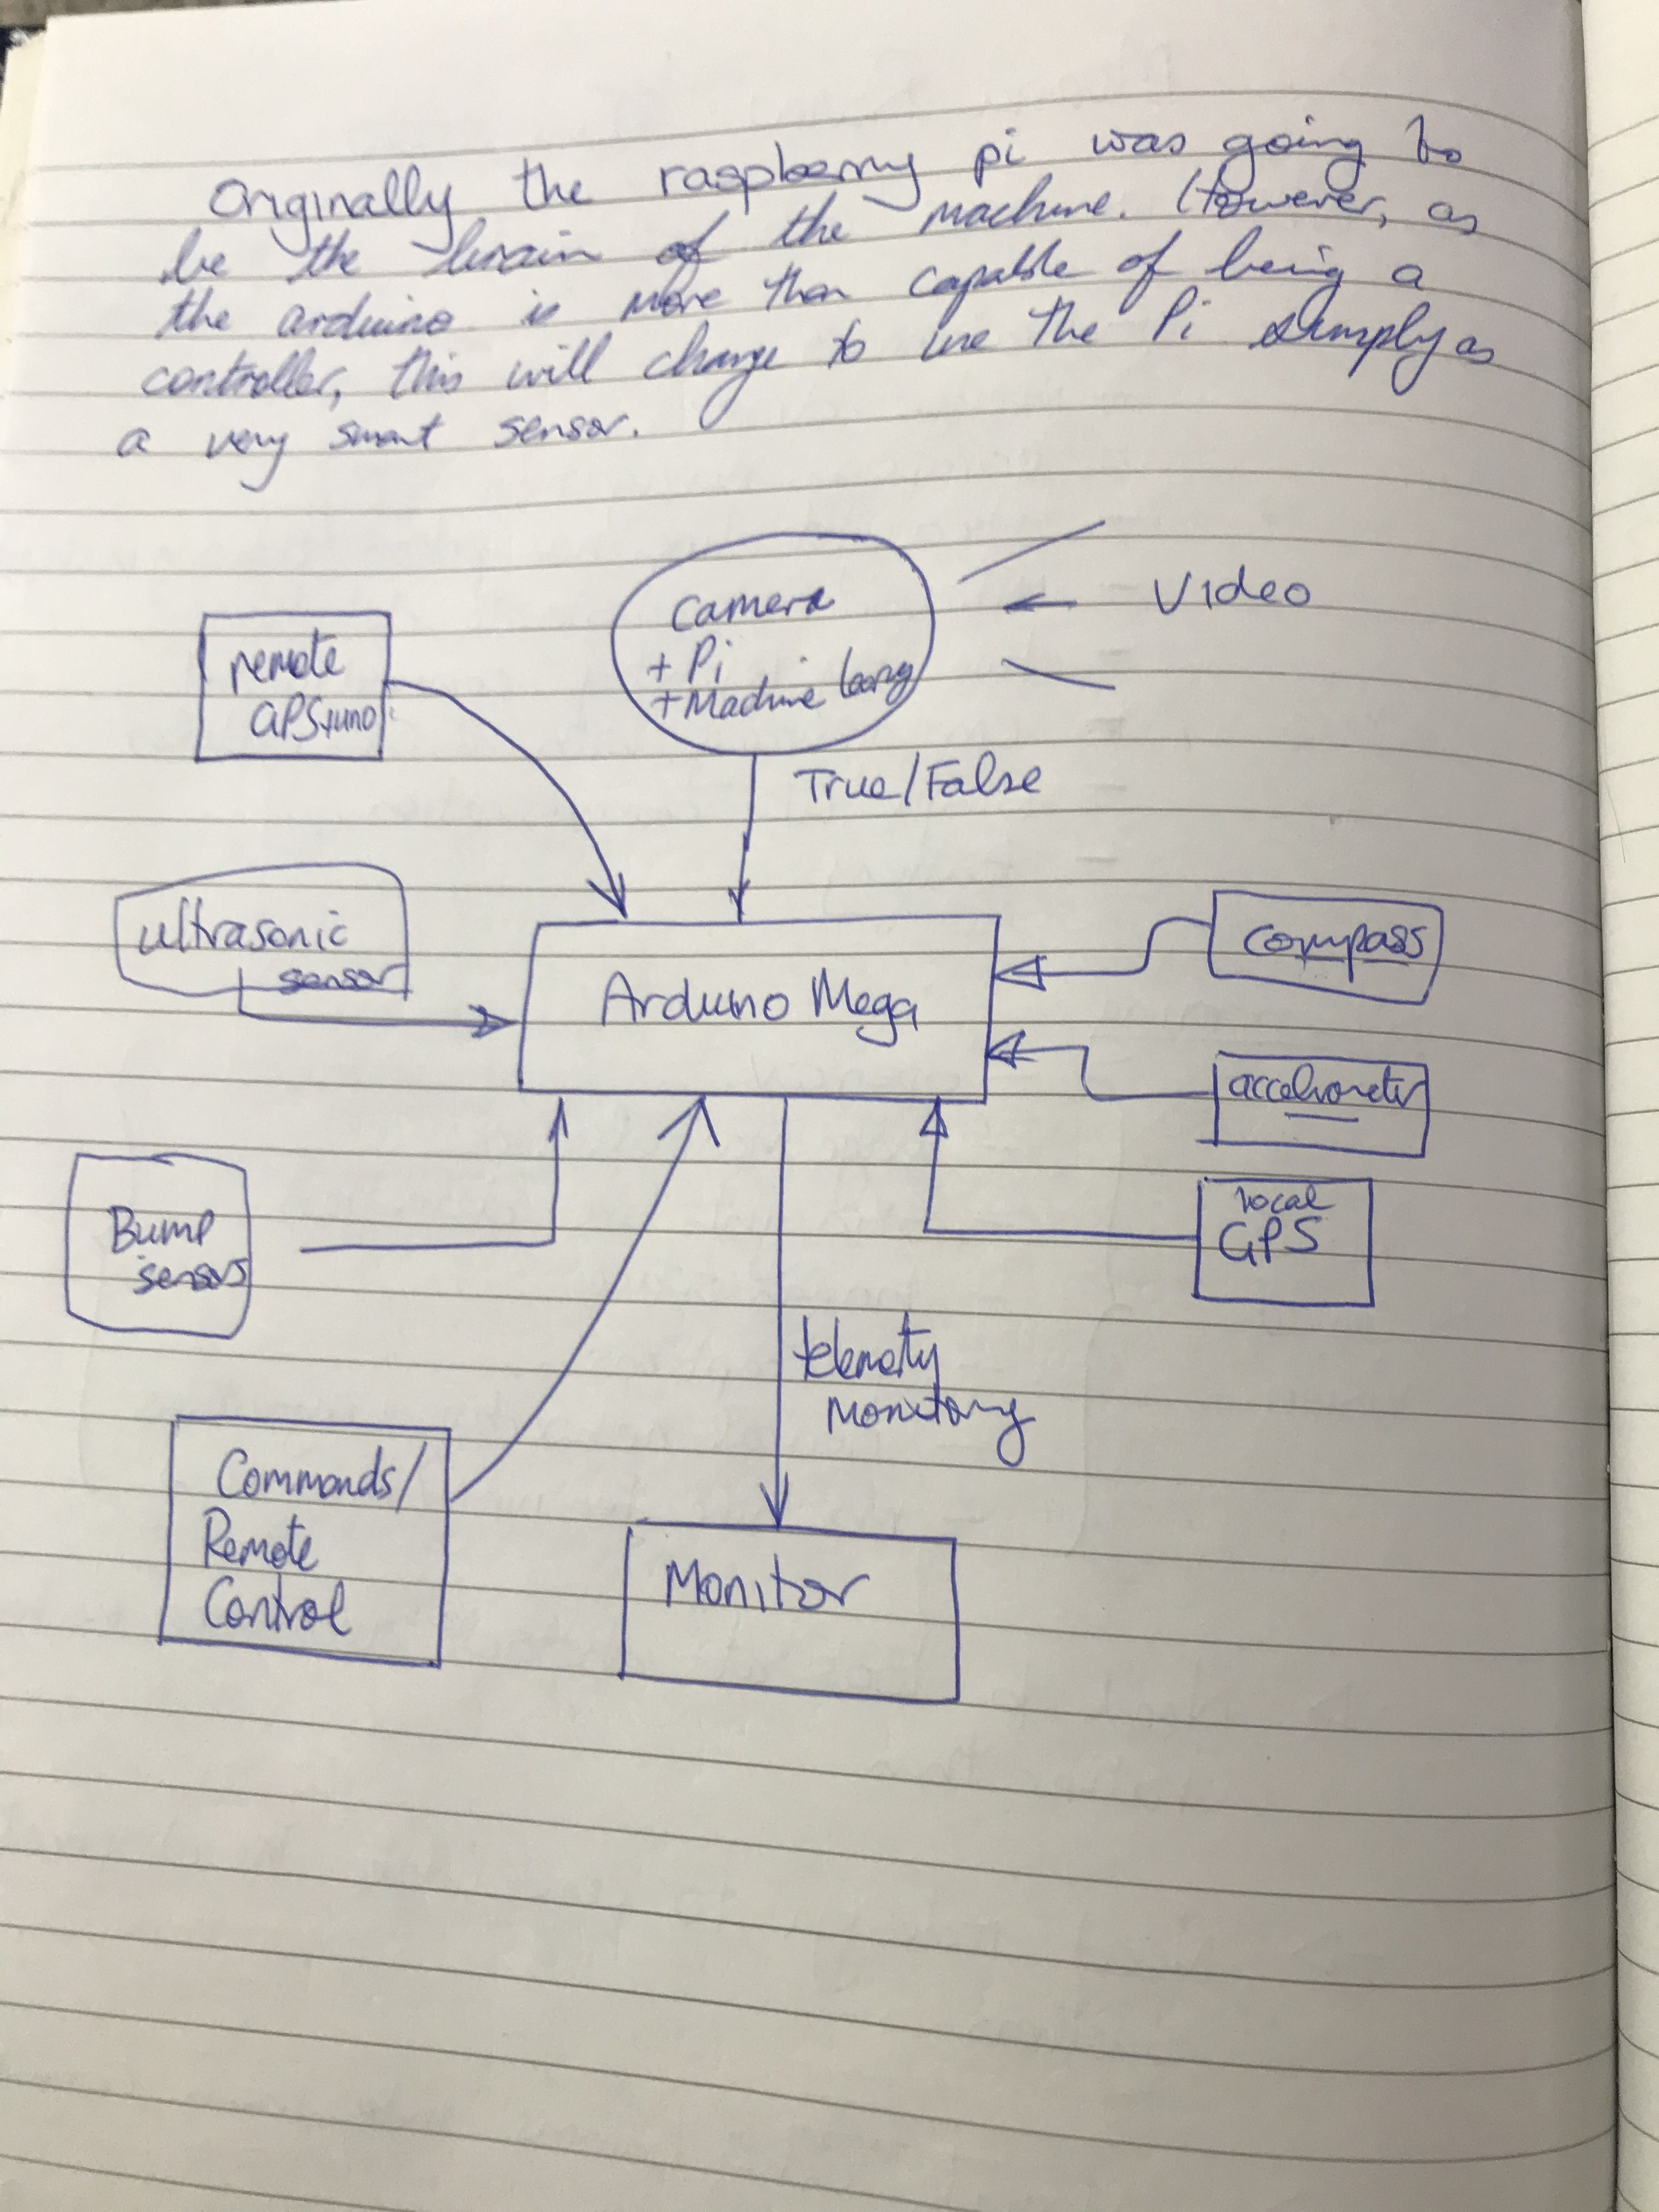 Originally the raspberry pi was going to
be the brain of the machine. However, as
the arduino is more than capable of being a
controller, this will change to use the Pi simply as
a very smart sensor.
Camera
+ Pi
+ Machine
Video
remote
GPS+uno
True/False
ultrasonic
sensor
Arduino Mega
compass
accelrometer
local
GPS
Bump
sensors
telemetry
Monitoring
Commands/
Remote
Control
Monitor